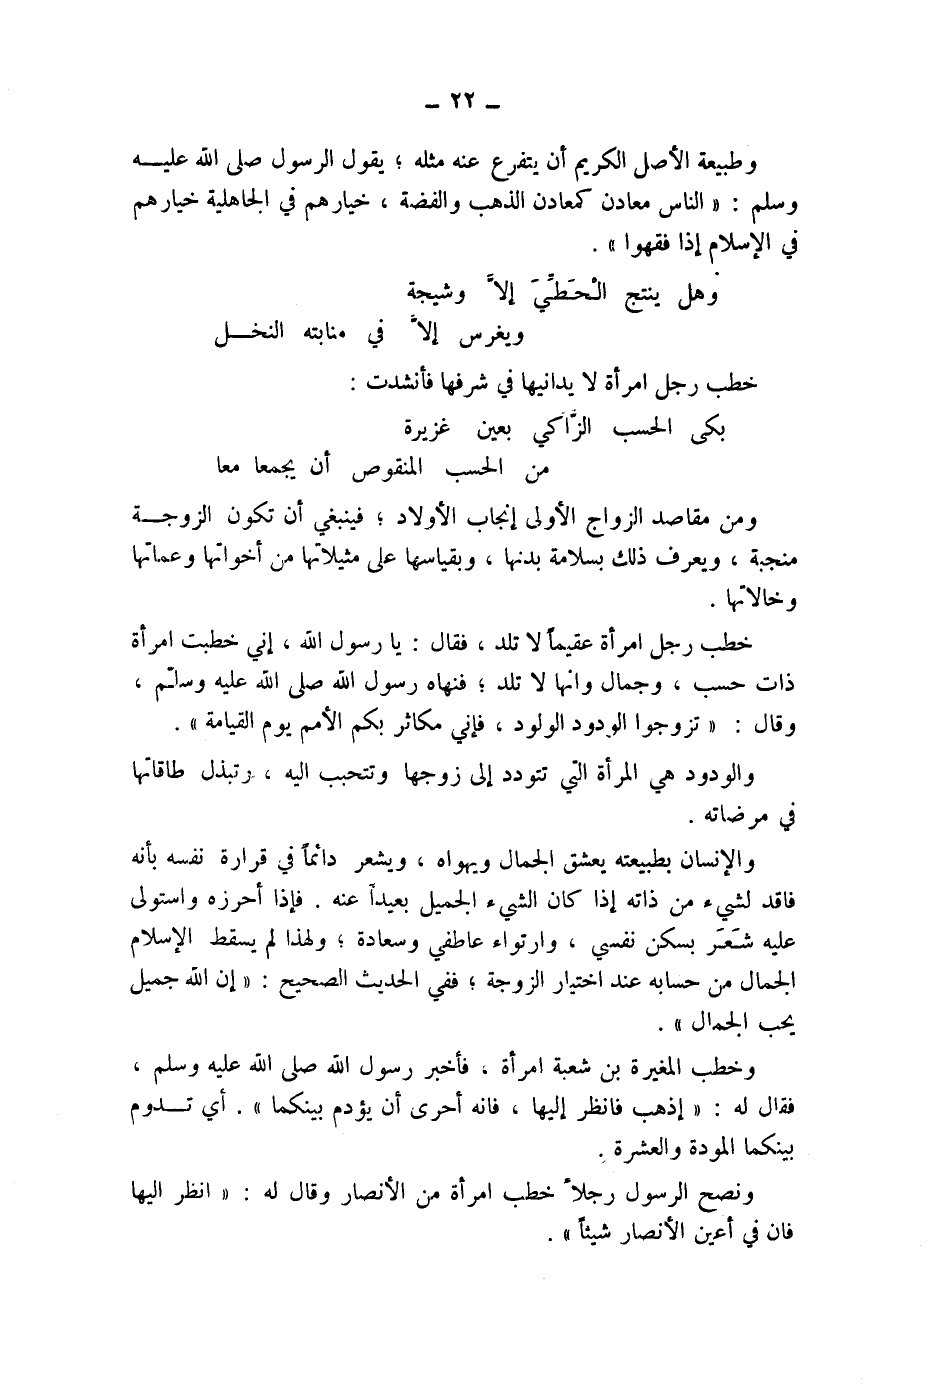 ـ ٢٢ ـ
وطبيعة الأصل الكريم أن يتفرع عنه مثله ؛ يقول الرسول صلى الله عليـــه
وسلم : « الناس معادن كمعادن الذهب والفضة ، خيارهم في الجاهلية خيارهم
في الإسلام إذا فقهوا » .
وهل ينتج الْخَطِّيَّ إلاَّ وشيجة
ويغرس إلاَّ في منابته النخـــل
خطب رجل امرأة لا يدانيها في شرفها فأنشدت :
بكى الحسب الزَّاكي بعين غزيرة
من الحسب المنقوص أن يجمعا معا
ومن مقاصد الزواج الأولى إنجاب الأولاد ؛ فينبغي أن تكون الزوجـــة
منجبة ، ويعرف ذلك بسلامة بدنها ، وبقياسها على مثيلاتها من أخواتها وعماتها
وخالاتها .
خطب رجل امرأة عقيماً لا تلد ، فقال : يا رسول الله ، إني خطبت امرأة
ذات حسب ، وجمال وانها لا تلد ؛ فنهاه رسول الله صلى الله عليه وسلّم ،
وقال : « تزوجوا الودود الولود ، فإني مكاثر بكم الأمم يوم القيامة » .
والودود هي المرأة التي تتودد إلى زوجها وتتحبب اليه ، وتبذل طاقاتها
في مرضاته .
والإنسان بطبيعته يعشق الجمال ويهواه ، ويشعر دائماً في قرارة نفسه بأنه
فاقد لشيء من ذاته إذا كان الشيء الجميل بعيداً عنه . فإذا أحرزه واستولى
عليه شَعَرَ بسكن نفسي ، وارتواء عاطفي وسعادة ؛ ولهذا لم يسقط الإسلام
الجمال من حسابه عند اختيار الزوجة ؛ ففي الحديث الصحيح : « إن الله جميل
يحب الجمال » .
وخطب المغيرة بن شعبة امرأة ، فأخبر رسول الله صلى الله عليه وسلم ،
فقال له : « إذهب فانظر إليها ، فانه أحرى أن يؤدم بينكما » . أي تـــدوم
بينكما المودة والعشرة .
ونصح الرسول رجلاً خطب امرأة من الأنصار وقال له : « انظر اليها
فان في أعين الأنصار شيئاً » .